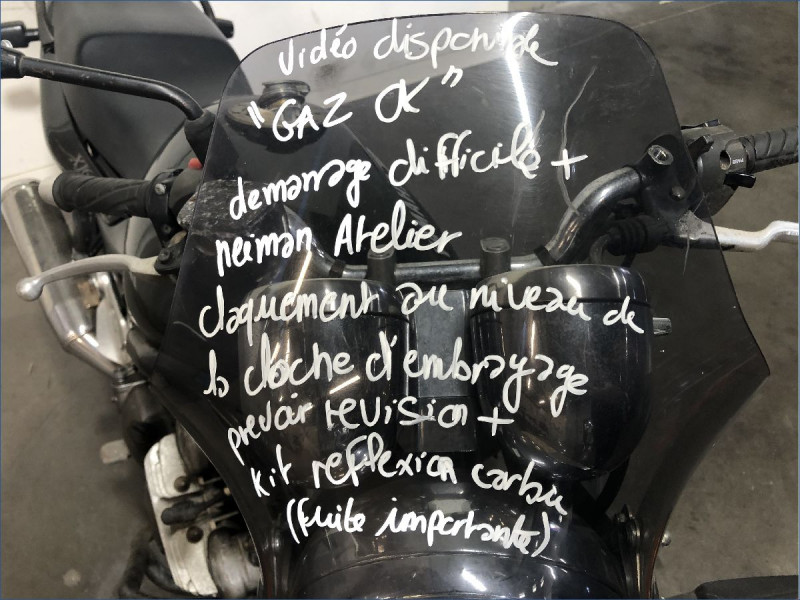 vidéo disponible
"GAZ OK"
demarrage difficile +
neiman Atelier
claquement au niveau de
la cloche d'embrayage
prevoir revision +
kit reflexion carbu
(fuite importante)